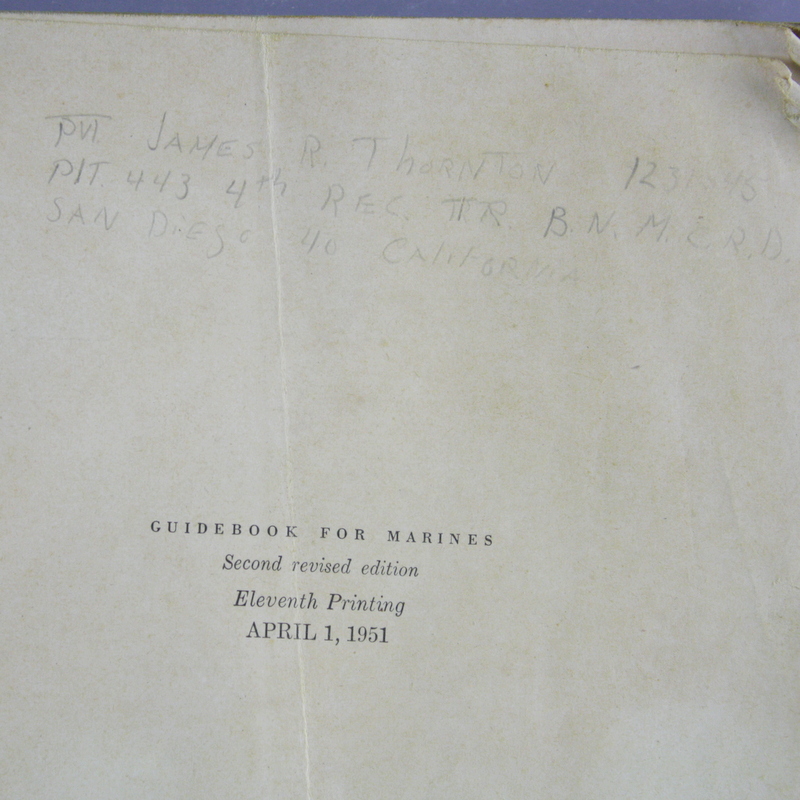 PVT. JAMES R. THORNTON
PLT. 443 4th REC. TR. B.N. M.C.R.D.
SAN DIEGO 40 CALIFORNIA
GUIDEBOOK FOR MARINES
Second revised edition
Eleventh Printing
APRIL 1, 1951